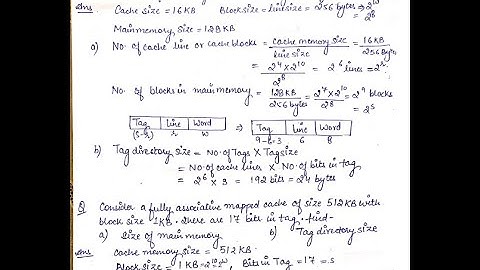 Ans Cache size = 16 KB Block size = line size = 256 bytes = 2^w
2^8
Main memory size = 128 KB
a) No. of cache line or cache blocks = cache memory size / line size = 16 KB / 256 Bytes
= 2^4 × 2^10 / 2^8 = 2^6 lines = 2^r
No. of blocks in main memory = 128 KB / 256 bytes = 2^7 × 2^10 / 2^8 = 2^9 blocks
= 2^s
Tag Line Word ⇒ Tag Line Word
(s-r) r w 9-6=3 6 8
b) Tag directory size = No. of Tags × Tag size
= No. of cache lines × No. of bits in tag
= 2^6 × 3 = 192 bits = 24 bytes
Q Consider a fully associative mapped cache of size 512 KB with
block size 1 KB. There are 17 bits in tag. find-
a) size of main memory b) Tag directory size
Ans Cache memory size = 512 KB
Block size = 1 KB = 2^10 = 2^w Bits in Tag = 17 = s